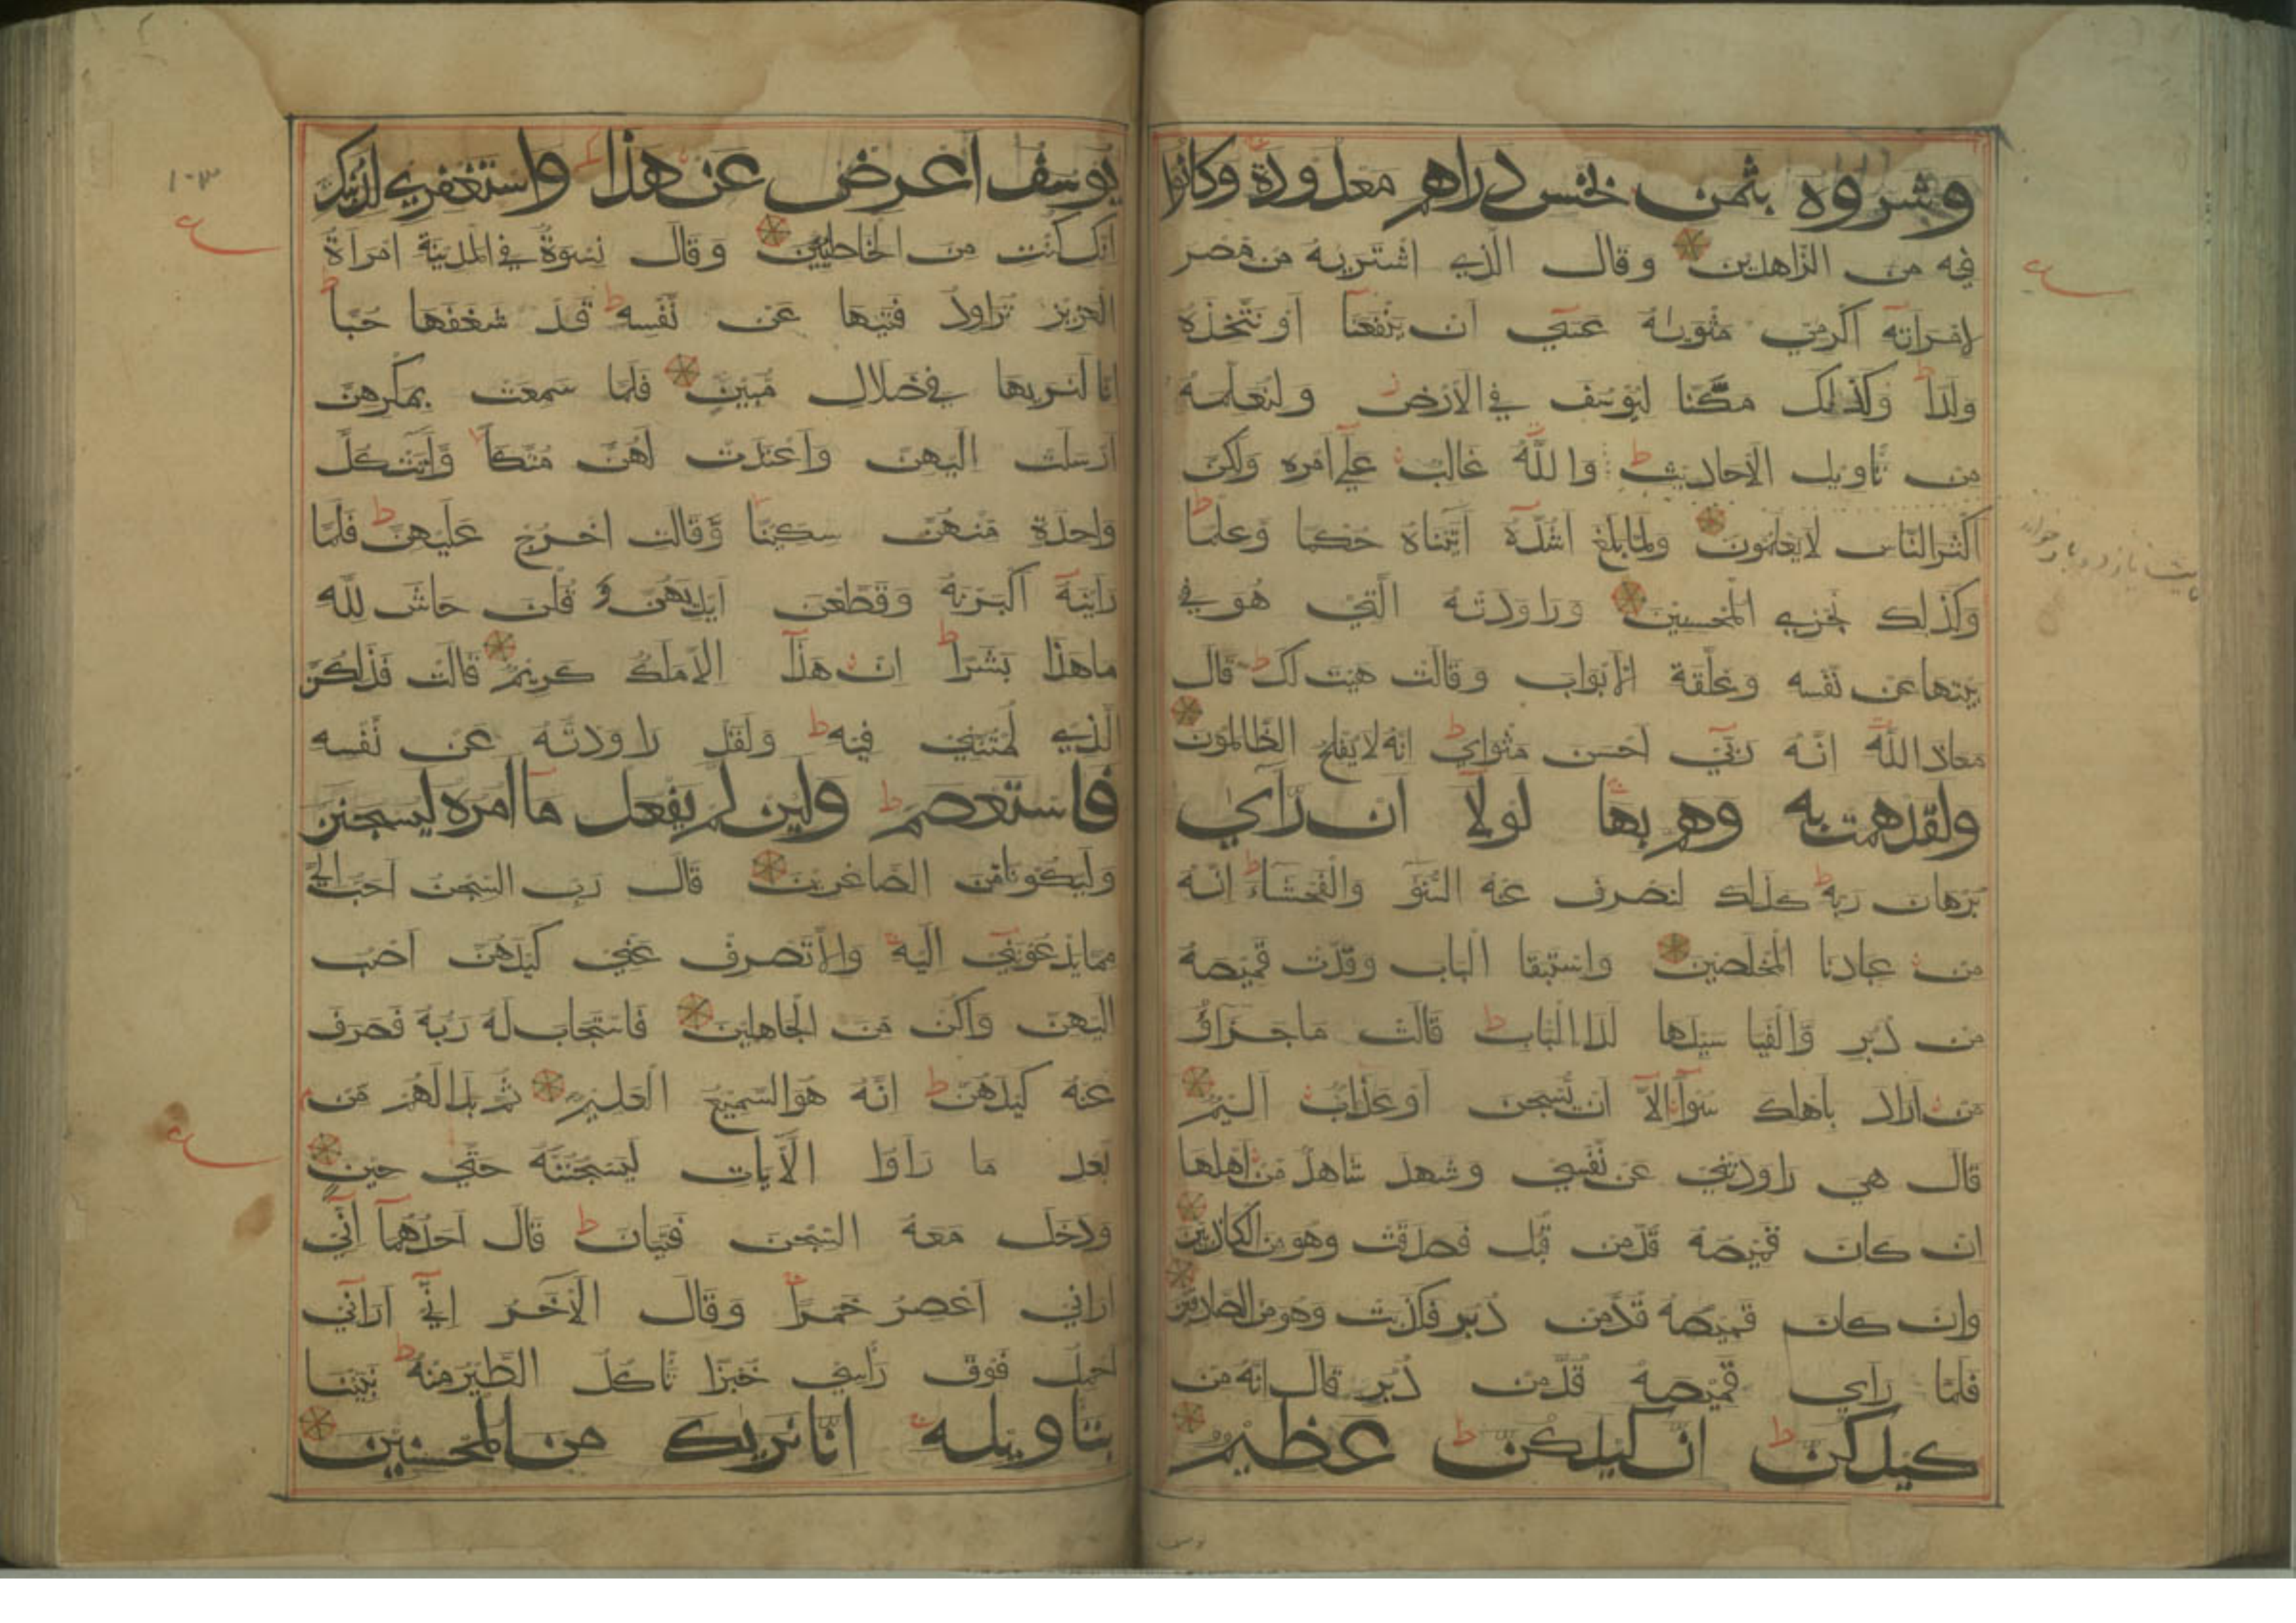 وشروه بثمن بخس دراهم معدودة وكانوا
فيه من الزاهدين وقال الذي اشتريه من مصر
لامراته اكرمي مثويه عسي ان ينفعنا او نتخذه
ولدا وكذلك مكنا ليوسف في الارض ولنعلمه
من تاويل الاحاديث والله غالب علي امره ولكن
اكثر الناس لا يعلمون ولما بلغ اشده اتيناه حكما وعلما
وكذلك نجزي المحسنين وراودته التي هو في
بيتها عن نفسه وغلقة الابواب وقالت هيت لك قال
معاذ الله انه ربي احسن مثواي انه لا يفلح الظالمون
ولقد همت به وهم بها لولا ان رآي
برهان ربه كذلك لنصرف عنه السوٓ والفحشاء انه
من عبادنا المخلصين واستبقا الباب وقدت قميصه
من دبر والفيا سيدها لدا الباب قالت ما جزاؤ
من اراد باهلك سوآ الا ان يسجن او عذاب اليم
قال هي راودتني عن نفسي وشهد شاهد من اهلها
ان كان قميصه قد من قبل فصدقت وهو من الكاذبين
وان كان قميصه قد من دبر فكذبت وهو من الصادقين
فلما راي قميصه قد من دبر قال انه من
كيدكن ان كيدكن عظيم
يوسف اعرض عن هذا واستغفري لذنبك
انك كنت من الخاطيين وقال نسوة في المدينة امراة
العزيز تراود فتيها عن نفسه قد شغفها حبا
انا لنريها في ضلال مبين فلما سمعت بمكرهن
ارسلت اليهن واعتدت لهن متكا واتت كل
واحدة منهن سكينا وقالت اخرج عليهن فلما
راينه اكبرنه وقطعن ايديهن و قلن حاش لله
ما هذا بشرا ان هذا الا ملك كريم قالت فذلكن
الذي لمتنني فيه ولقد راودته عن نفسه
فاستعصم ولين لم يفعل ما امره ليسجنن
وليكونا من الصاغرين قال رب السجن احب الي
مما يدعونني اليه والا تصرف عني كيدهن اصب
اليهن واكن من الجاهلين فاستجاب له ربه فصرف
عنه كيدهن انه هو السميع العليم ثم بدا لهم من
بعد ما راوا الايات ليسجننه حتي حين
ودخل معه السجن فتيان قال احدهما اني
اراني اعصر خمرا وقال الآخر اني اراني
احمل فوق راسي خبزا تاكل الطير منه نبينا
بتاويله انا نريك من المحسنين
١٠٣